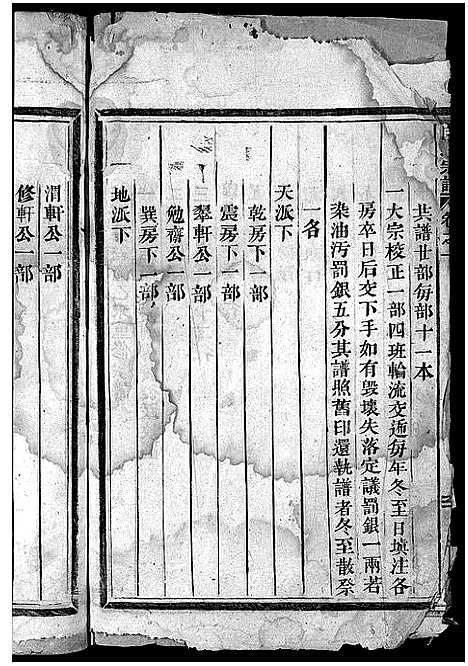 宗譜 卷之一
共譜廿部每部十一本
一大宗校正一部四班輪流交遞每年冬至日填注各
房卒日后交下手如有毀壞失落定議罰銀一兩若
染油污罰銀五分其譜照舊印還執譜者冬至散祭
一名
天派下
乾房下一部
震房下一部
翠軒公一部
勉齋公一部
巽房下一部
地派下
渭軒公一部
修軒公一部